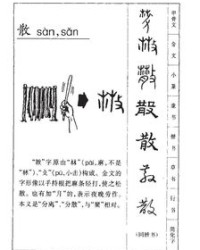 散 sàn, sǎn
"散"字原由"𣏟"(pài,麻,不是
"林")、"攴"(pū,小击)构成。金文的
字形像以手持棍把麻条轻打,使之松
散。也有加"月"的,表示夜晚劳作。
本义是"分离"、"分散",与"聚"相对。
甲骨文
金文
小篆
隶书
楷书
草书
行书
简化字
散
散
(同楷书)